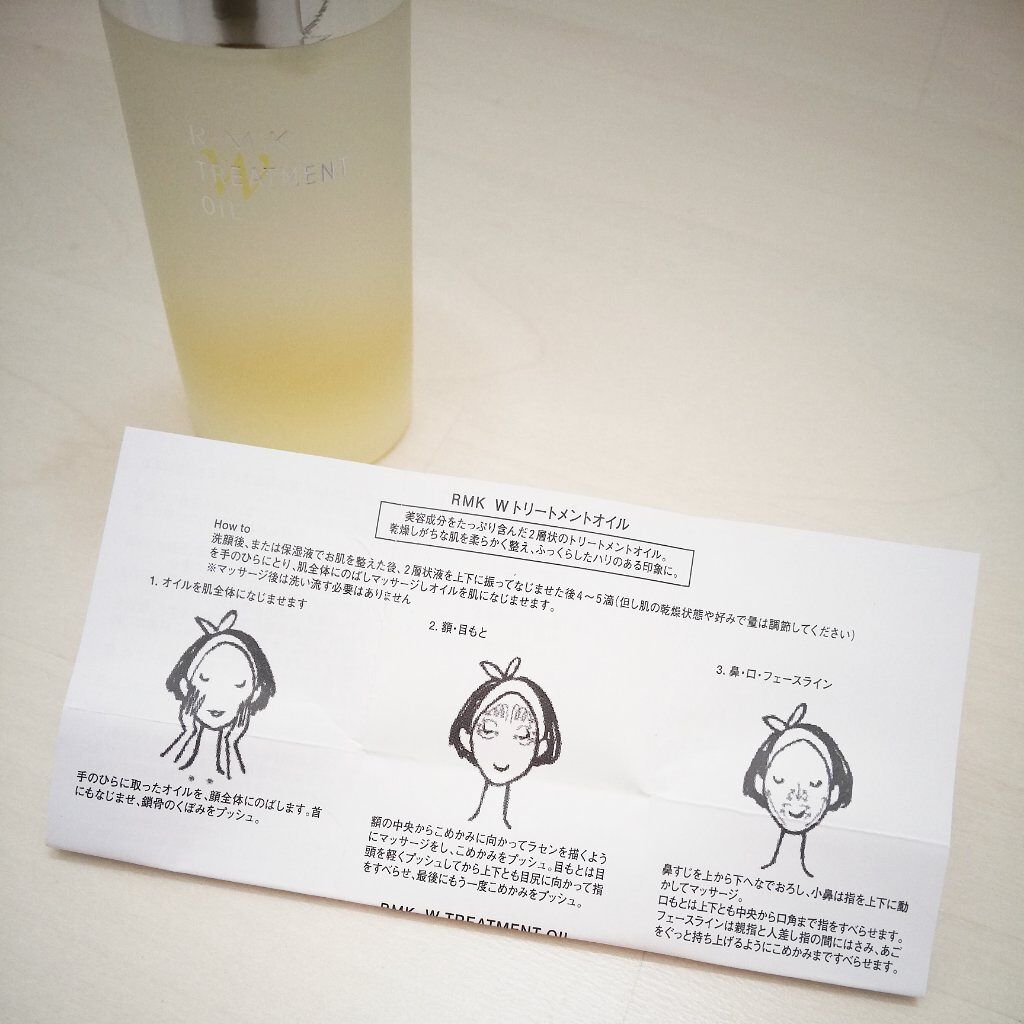 RMK
W
TREATMENT
OIL
RMK Wトリートメントオイル
美容成分をたっぷり含んだ2層状のトリートメントオイル。
乾燥しがちな肌を柔らかく整え、ふっくらしたハリのある印象に。
How to
洗顔後、または保湿液でお肌を整えた後、2層状液を上下に振ってなじませた後4～5滴(但し肌の乾燥状態や好みで量は調節してください)
を手のひらにとり、肌全体にのばしマッサージしオイルを肌になじませます。
※マッサージ後は洗い流す必要はありません
1. オイルを肌全体になじませます
手のひらに取ったオイルを、顔全体にのばします。首
にもなじませ、鎖骨のくぼみをプッシュ。
2. 額・目もと
額の中央からこめかみに向かってラセンを描くよう
にマッサージをし、こめかみをプッシュ。目もとは目
頭を軽くプッシュしてから上下とも目尻に向かって指
をすべらせ、最後にもう一度こめかみをプッシュ。
3. 鼻・口・フェースライン
鼻すじを上から下へなでおろし、小鼻は指を上下に動
かしてマッサージ。
口もとは上下とも中央から口角まで指をすべらせます。
フェースラインは親指と人差し指の間にはさみ、あご
をぐっと持ち上げるようにこめかみまですべらせます。
RMK W TREATMENT OIL